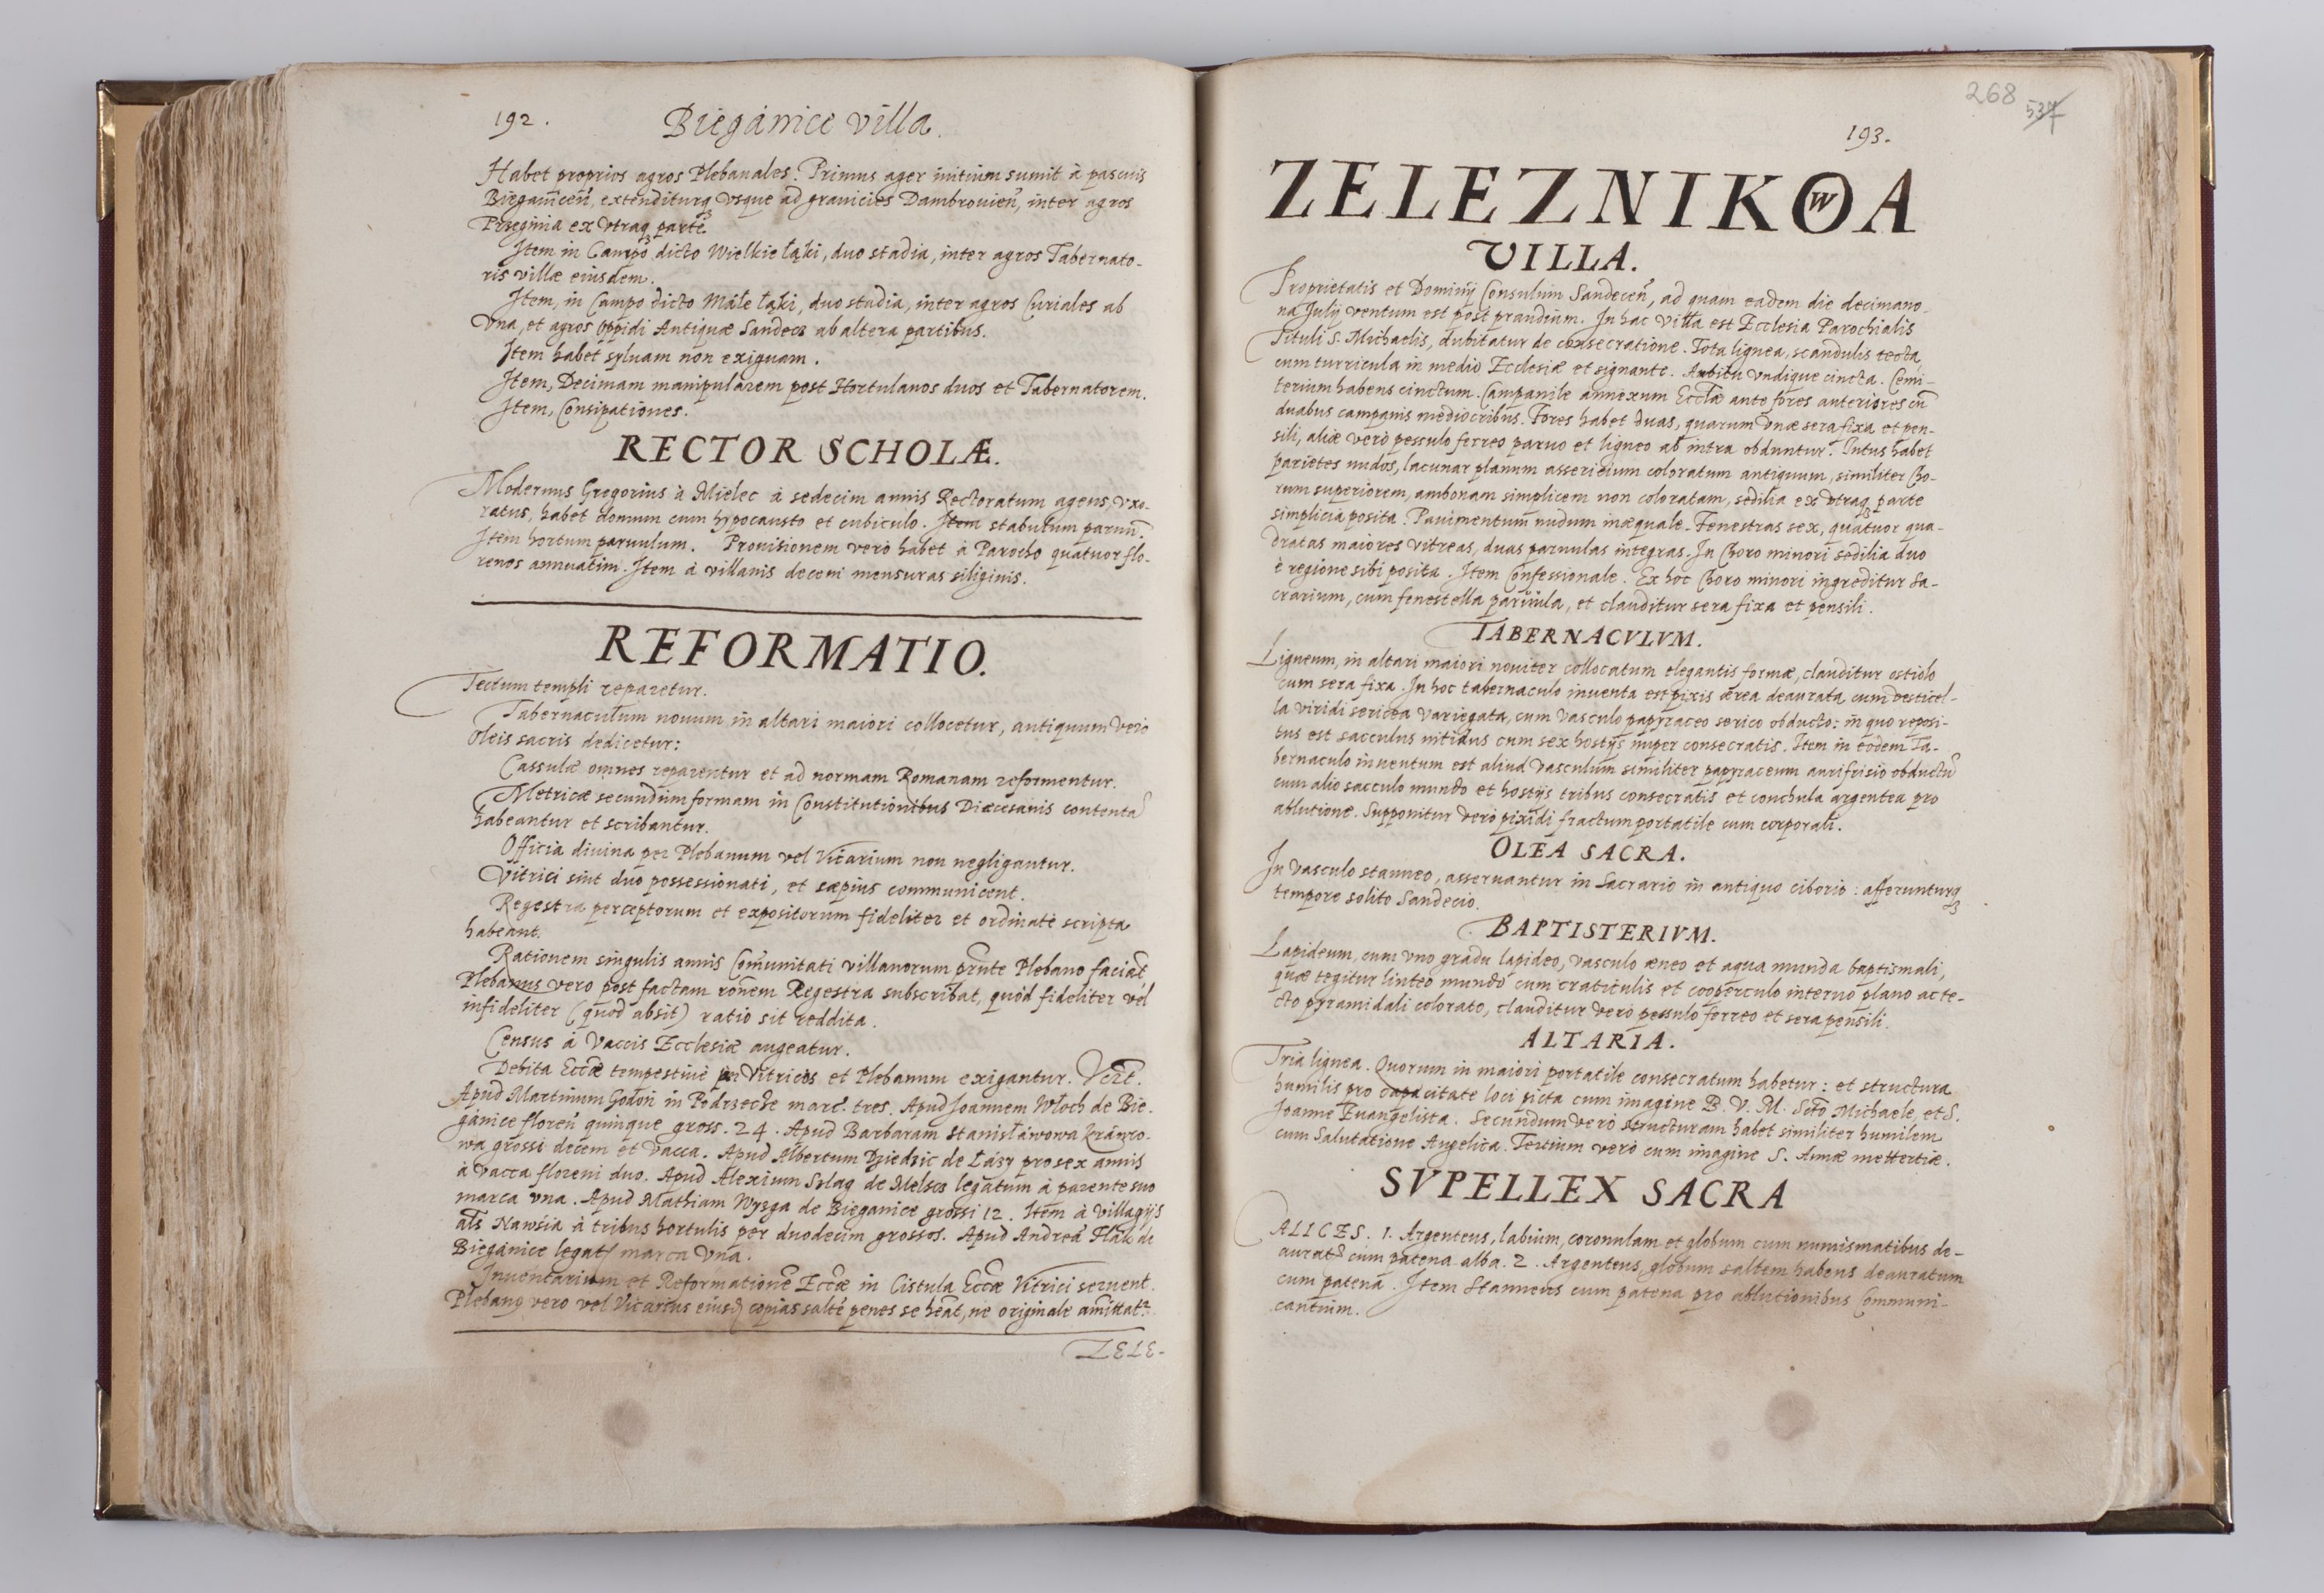 192.
Biegánice villa.
Habet proprios agros Plebanales. Primus ager initium sumit à pascuis
Biegánicen̄, extenditurq; vsque ad granicies Dambrouień, inter agros
ex vtraq; parte.
Item in Campo dicto Wielkie łąki, duo stadia, inter agros Tabernato-
ris villæ eiusdem.
Item, in Campo dicto Máłe łąki, duo stadia, inter agros Curiales ab
vna, et agros Oppidi Antiquæ Sandecz ab altera partibus.
Item habet syluam non exiguam.
Item, Decimam manipularem post Hortulanos duos et Tabernatorem.
Item, Consipationes.
RECTOR SCHOLÆ.
Modernus Gregorius à Mielec à sedecim annis Rectoratum agens, vxo-
ratus, habet domum cum hypocausto et cubiculo. Item stabulum paruū.
Item hortum paruulum. Prouisionem verò habet à Parocho quatuor flo-
renos annuatim. Item à villanis decem mensuras siliginis.
REFORMATIO.
Tectum templi reparetur.
Tabernaculum nouum in altari maiori collocetur, antiquum verò
Oleis sacris dedicetur:
Cassulæ omnes reparentur et ad normam Romanam reformentur.
Metricæ secundùm formam in Constitutionibus Diœcesanis contentā
habeantur et scribantur.
Officia diuina per Plebanum vel Vicarium non negligantur.
Vitrici sint duo possessionati, et sæpius communicent.
Regestra perceptorum et expositorum fideliter et ordinatè scripta
habeant.
Rationem singulis annis Com̄unitati villanorum prn̄te Plebano faciāt,
Plebanus vero post factam rōnem Regestra subscribat, quòd fideliter vel
infideliter (quod absit) ratio sit reddita.
Census à vaccis Ecclesiæ augeatur.
Debita Eccłæ tempestiuè per Vitricos et Plebanum exigantur. Vert.
Apud Martinum Godoń in Podrzecze marc. tres. Apud Joannem Włoch de Bie-
gánice floreń quinque gross. 24. Apud Barbaram Stanisłáwowa
wa grossi decem et vacca. Apud Albertum Dziedzic de Łázy pro sex annis
à vacca floreni duo. Apud Alexium Szlag de legatum à parente suo
marca vna. Apud Mathiam Wyzga de Bieganice grossi 12. Item à villagijs
als Nawsia à tribus hortulis per duodecim grossos. Apud Andreā Flák de
Biegánice legat marca vna.
Inuentarium et Reformationē Eccłæ in Cistula Eccłæ Vitrici seruent.
Plebanq vero vel Vicarius eiusd copias saltē penes se heāt, ne originale amittatr.
ZELE-
268
537
193.
ZELEZNIKOWA
VILLA.
Proprietatis et Dominij Consulum Sandeceń, ad quam eadem die decimano-
na Julij ventum est post prandium. In hac villa est Ecclesia Parochialis
Tituli S. Michaelis, dubitatur de consecratione. Tota lignea, scandulis tecta,
cum turricula in medio Ecclesiæ et signante. Ambitu vndique cincta. Cemi-
terium habens cinctum. Campanile annexum Eccłæ ante fores anteriores cū
duabus campanis mediocribus. Fores habet duas, quarum vnæ sera fixa et pen-
sili, aliæ verò pessulo ferreo paruo et ligneo ab intra obduntur. Intus habet
parietes nudos, lacunar planum assericium coloratum antiquum, similiter Cho-
rum superiorem, ambonam simplicem non coloratam, sedilia ex vtraq; parte
simplicia posita. Pauimentum nudum inæquale. Fenestras sex, quatuor qua-
dratas maiores vitreas, duas paruulas integras. In Choro minori sedilia duo
è regione sibi posita. Item Confessionale. Ex hoc Choro minori ingreditur Sa-
crarium, cum fenestella paruula, et clauditur sera fixa et pensili.
TABERNACVLVM.
Ligneum, in altari maiori nouiter collocatum elegantis formæ, clauditur ostiolo
cum sera fixa. In hoc tabernaculo inuenta est pixis ærea deaurata cum vesticel-
la viridi sericea variegata, cum vasculo papyraceo serico obducto: in quo reposi-
tus est sacculus nitidus cum sex hostijs nuper consecratis. Item in eodem Ta-
bernaculo inuentum est aliud vasculum similiter papyraceum aurifrisio obductū
cum alio sacculo mundo et hostijs tribus consecratis et conchula argentea pro
ablutione. Supponitur verò pixidi fractum portatile cum corporali.
OLEA SACRA.
In vasculo stanneo, asseruantur in Sacrario in antiquo ciborio: afferunturq;
tempore solito Sandecio.
BAPTISTERIVM.
Lapideum, cum vno gradu lapideo, vasculo æneo et aqua munda baptismali,
quæ tegitur linteo mundo cum craticulis et cooperculo interno plano ac te-
cto pyramidali colorato, clauditur verò pessulo ferreo et sera pensili.
ALTARIA.
Tria lignea. Quorum in maiori portatile consecratum habetur: et structura
humilis pro capacitate loci picta cum imagine B. V. M. Scto Michaele, et S.
Joanne Euangelista. Secundum verò structuram habet similiter humilem
cum Salutatione Angelica. Tertium verò cum imagine S. Annæ mettertiæ.
SVPELLEX SACRA
CALICES. 1. Argenteus, labium, coronulam et globum cum numismatibus de-
auratū cum patena alba. 2. Argenteus globum saltem habens deauratum
cum patena. Item Stanneus cum patena pro ablutionibus Communi-
cantium.